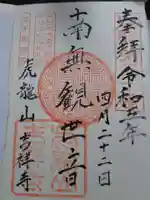 奉拝 令和五年
四月二十二日
南無観世音
虎龍山 吉祥寺